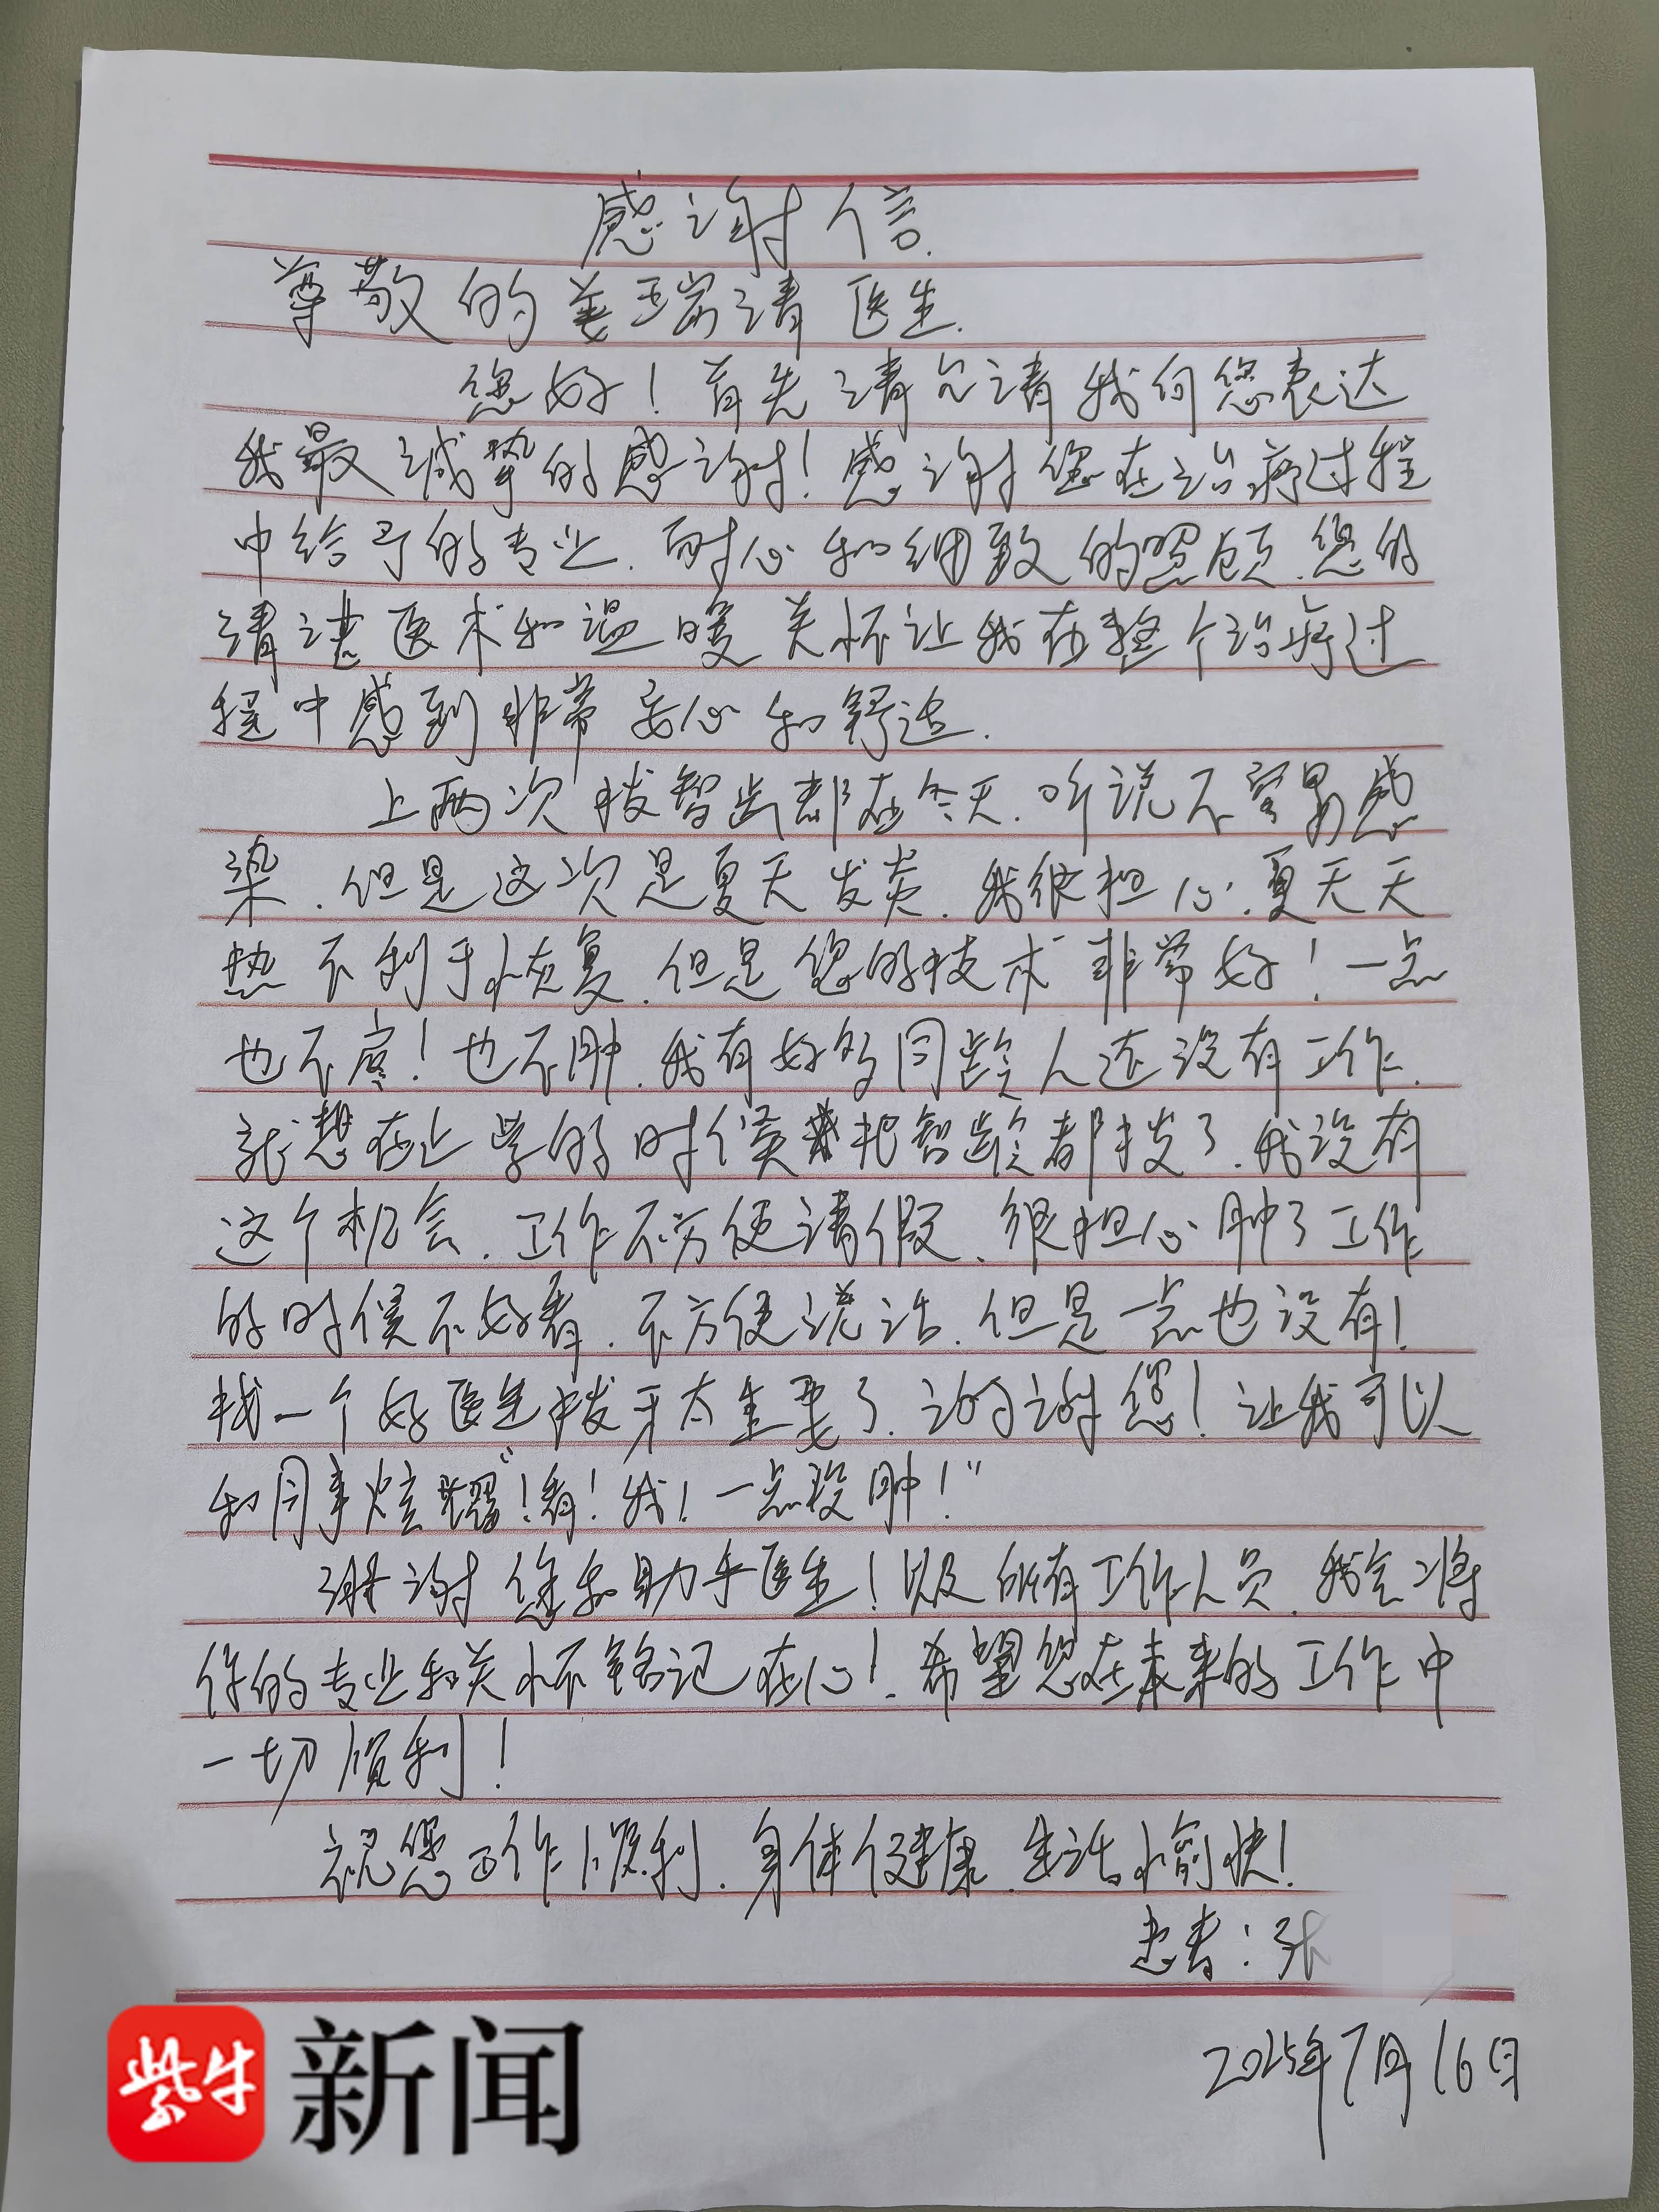 感谢信.
尊敬的姜瑞清医生.
您好！首先请允请我向您表达
我最诚挚的感谢！感谢您在治疗过程
中给予的专业.耐心和细致的照顾.您的
请谌医术和温暖关怀让我在整个治疗过
程中感到非常安心和舒适.
上两次拔智齿都在冬天.听说不容易感
染.但是这次是夏天发炎.我很担心.夏天天
热不利于恢复.但是您的技术非常好！一点
也不疼！也不肿.我有好多同龄人还没有工作.
就想在上学的时候把智龄都拔了.我没有
这个机会.工作不方便请假、很担心肿了工作
的时候不好看.不方便说话.但是一点也没有！
找一个好医生拔牙太重要了.谢谢您！让我可以
和同事炫耀“！看！我！一点没肿！”
谢谢您和助手医生！以及所有工作人员.我会将
你的专业和关怀铭记在心！.希望您在未来的工作中
一切顺利！
祝您工作顺利.身体健康.生活愉快！
患者：张
2025年7月16日
紫牛新闻